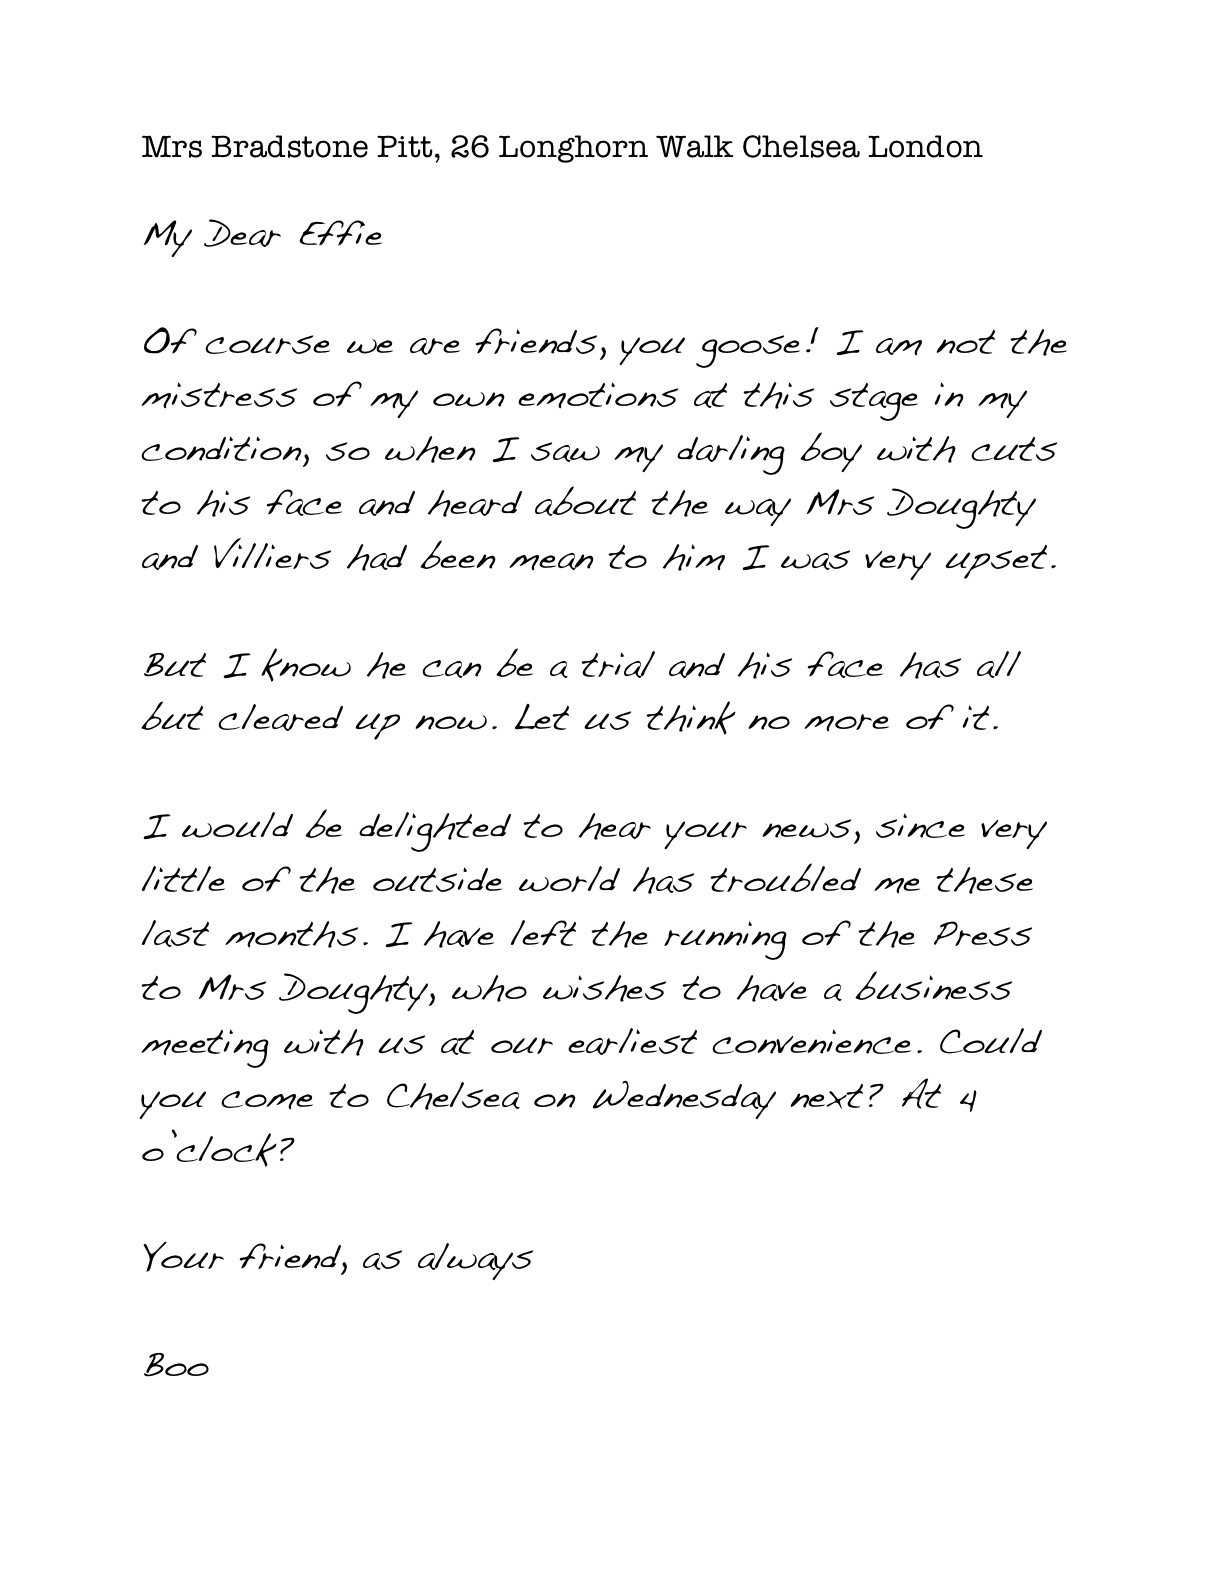 Mrs Bradstone Pitt, 26 Longhorn Walk Chelsea London
My Dear Effie
Of course we are friends, you goose! I am not the
mistress of my own emotions at this stage in my
condition, so when I saw my darling boy with cuts
to his face and heard about the way Mrs Doughty
and Villiers had been mean to him I was very upset.
But I know he can be a trial and his face has all
but cleared up now. Let us think no more of it.
I would be delighted to hear your news, since very
little of the outside world has troubled me these
last months. I have left the running of the Press
to Mrs Doughty, who wishes to have a business
meeting with us at our earliest convenience. Could
you come to Chelsea on Wednesday next? At 4
o`clock?
Your friend, as always
Boo